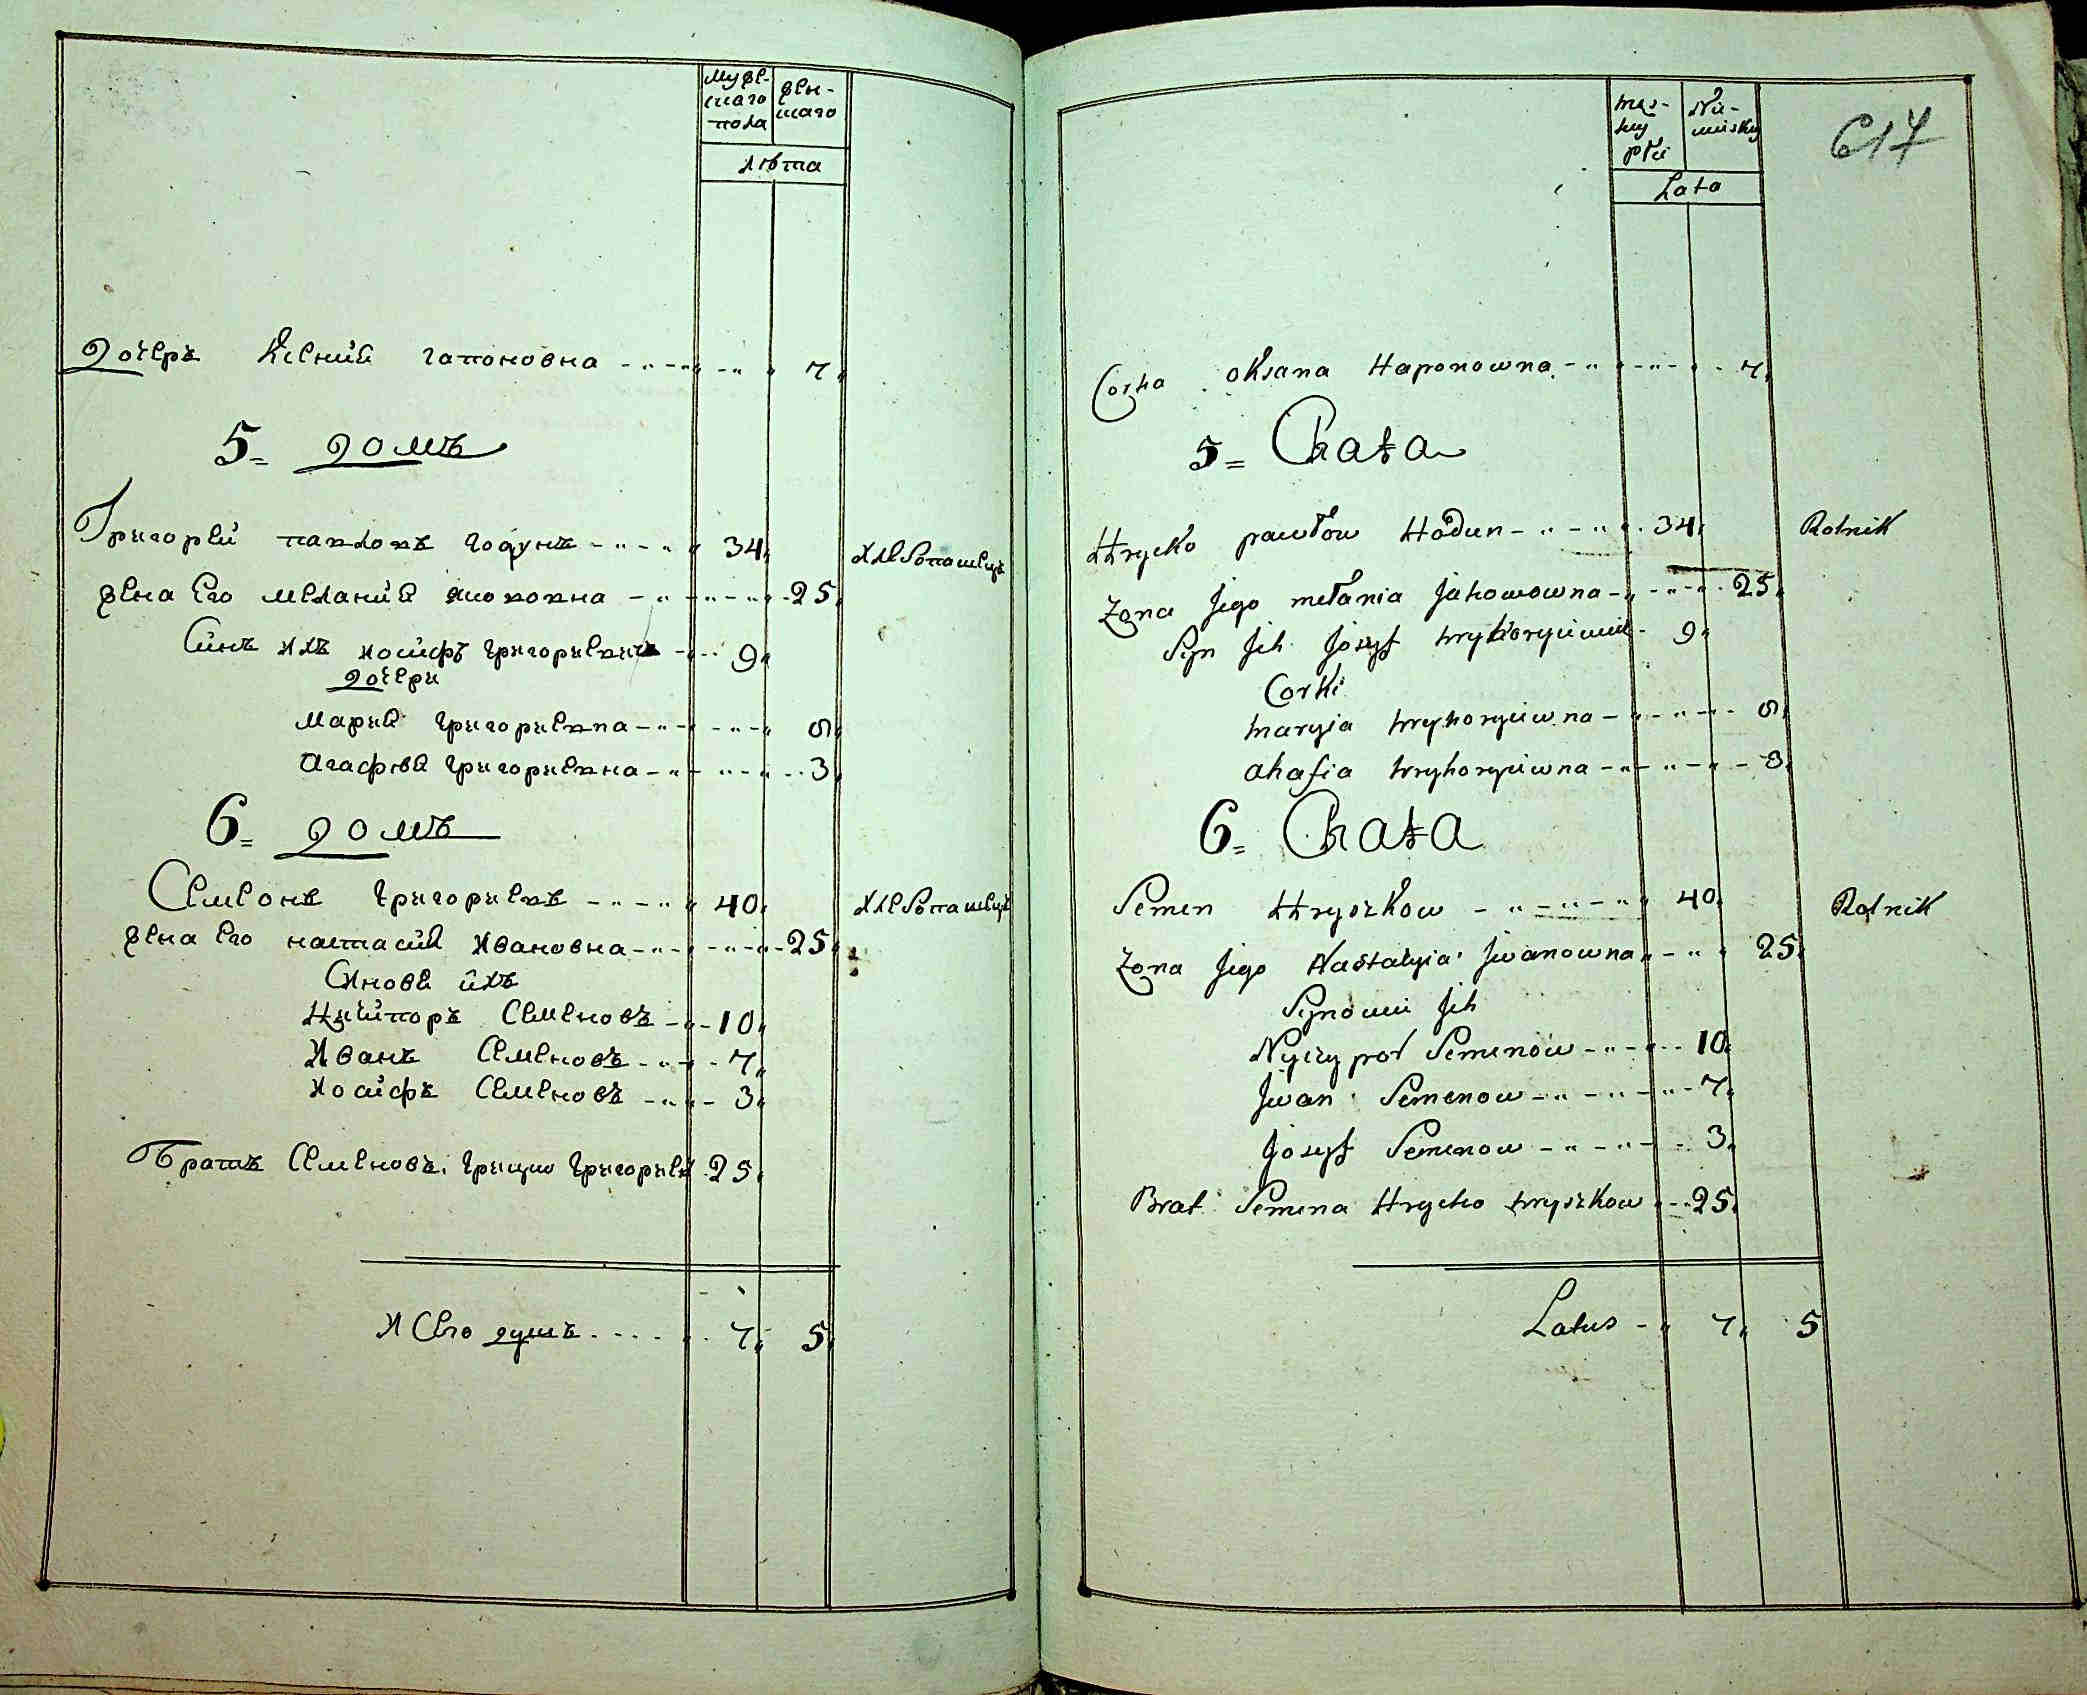 муже-
скаго
пола
жен-
скаго
лѣта
дочерь Ксения гапоновна 7
5 домъ
Григорей павловъ годунъ 34 хлебопашецъ
жена его мелания якововна 25
Синъ ихъ иосифъ григориевичъ 9
дочери
Мария григориевна 8
агафѣя григориевна 3
6 домъ
Семіонъ григориевъ 40 хлебопашецъ
жена его настасия Ивановна 25
Синове ихъ
Ничипоръ Семеновъ 10
Иванъ Семеновъ 7
Иосифъ Семеновъ 3
Братъ Семеновъ грицко григориев 25
Всего душъ 7 5
męz-
kiy
płci
Nie-
wiesky
Lata
617
Corka oksana Haponowna 7
5 Chata
Hrycko pawłow Hodun 34 Rolnik
Zona Jego mełania Jakowowna 25
Syn Jch Jozyf hryhoryiewicz 9
Corki
maryia hryhoryiewna 8
ahafia hryhoryiewna 3
6 Chata
Semen Hryszkow 40 Rolnik
Zona Jego Nastasyia Jwanowna 25
Synowie Jch
Nyczypor Semenow 10
Jwan Semenow 7
Jozyf Semenow 3
Brat Semena Hrycko hryszkow 25
Latus 7 5